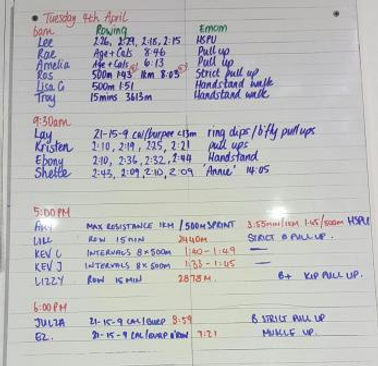 • Tuesday 4th April
6am Rowing Emom
Lee 2:26, 2:29, 2:18, 2:15 HSPU
Rae Age + Cals 8:46 Pull up
Amelia Age + Cals 6:13 Pull up
Ros 500m 1:43 1km 8:03 Strict pull up
Lisa G 500m 1:51 Handstand walk
Troy 15mins 3613m Handstand walk
9:30am
Lay 21-15-9 cal/burpee <13m ring dips / b'fly pull ups
Kristen 2:10, 2:19, 2:25, 2:21 pull ups
Ebony 2:10, 2:36, 2:32, 2:44 Handstand
Shelle 2:43, 2:09, 2:10, 2:09 'Annie' 14:05
5:00PM
MAX RESISTANCE 1KM / 500M SPRINT 3:55min/1KM 1:45/500m HSPU
ROW 15MIN 2440M STRICT B PULL UP.
KEV C INTERVALS 8x500m 1:40 - 1:49 —
KEV J INTERVALS 8x500m 1:33 - 1:45 —
LIZZY ROW 15 MIN 2878M. B+ KIP PULL UP.
6:00PM
JULZA 21-15-9 CAL/BURP 8:59 B STRICT PULL UP
EZ. 21-15-9 CAL/BURP 9:21 MUSCLE UP.